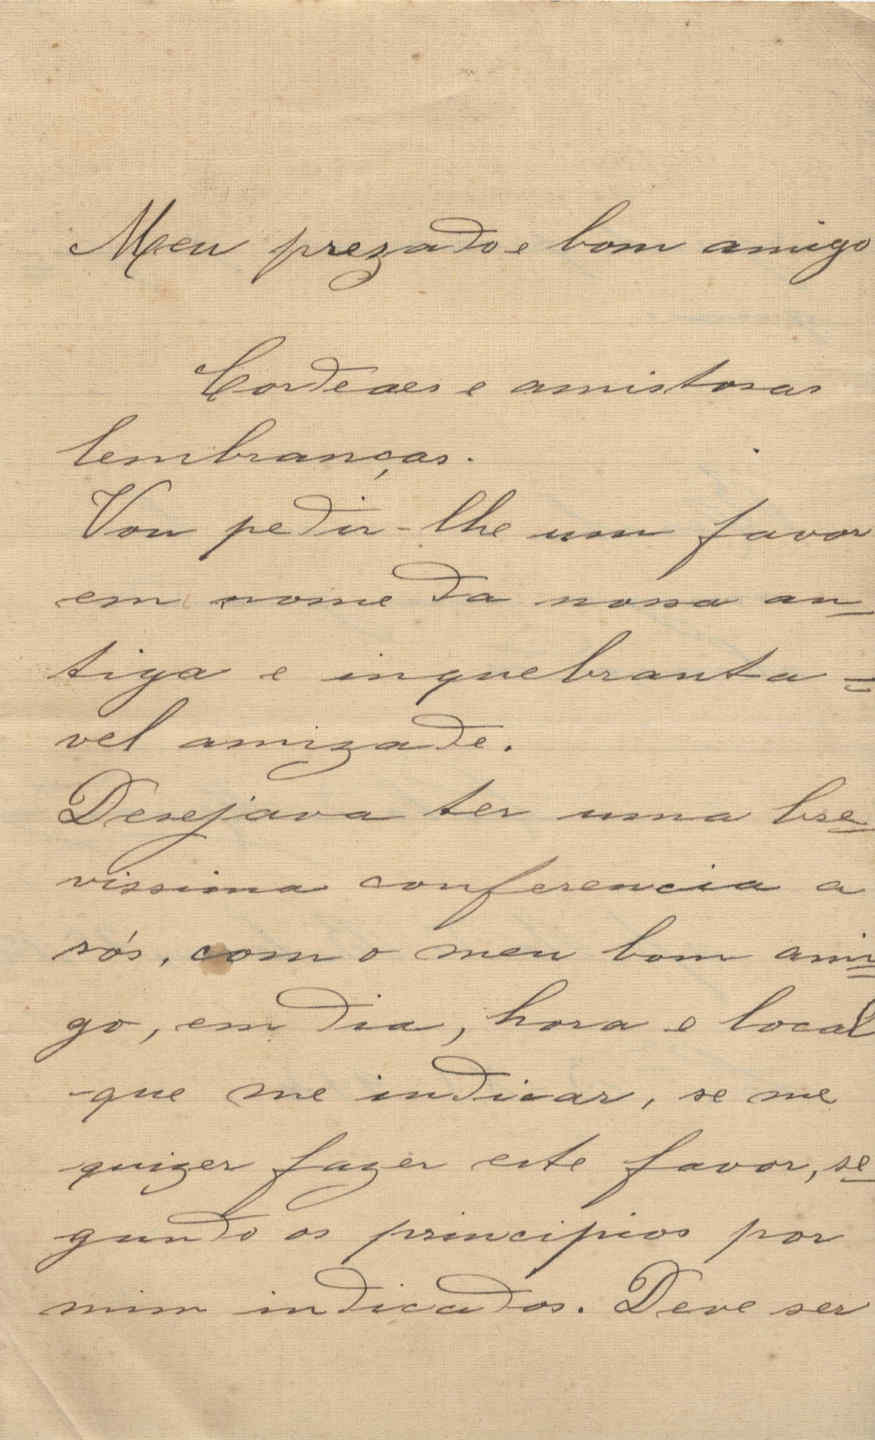 Meu prezado e bom amigo
Cordeaes e amistosas
lembranças.
Vou pedir-lhe um favor
em nome da nossa an-
tiga e inquebranta=
vel amizade.
Desejava ter uma bre=
vissima conferencia a
sós, com o meu bom ami=
go, em dia, hora e local
que me indicar, se me
quizer fazer este favor, se=
gundo os principios por
mim indicados. Deve ser